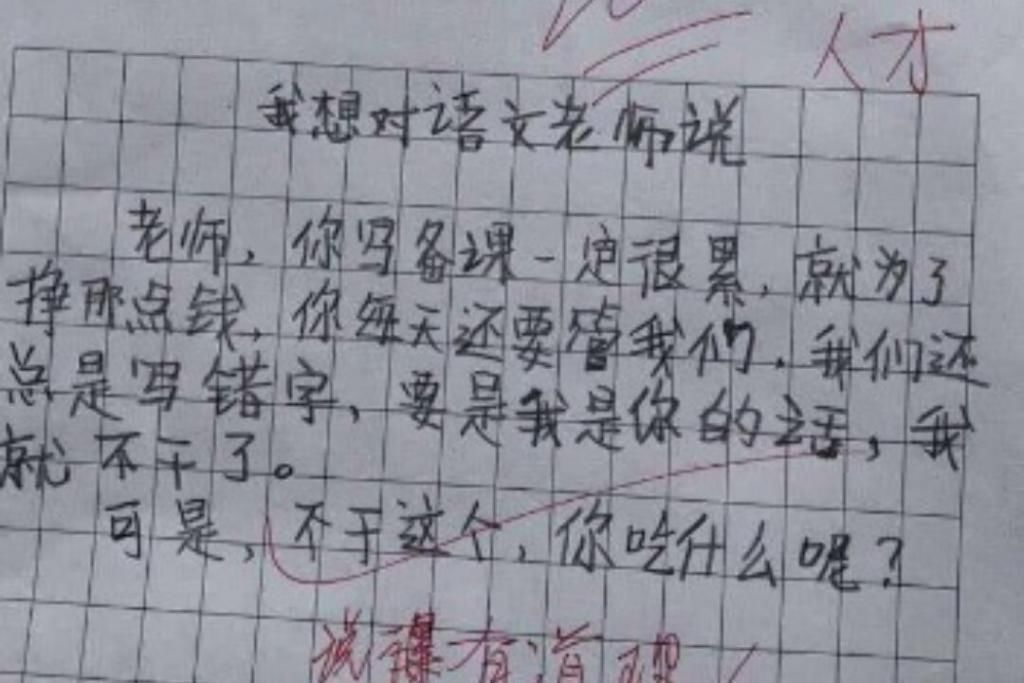 人才
我想对语文老师说
老师，你写备课一定很累，就为了
挣那点钱，你每天还要管我们，我们还
总是写错字，要是我是你的话，我
就不干了。
可是，不干这个，你吃什么呢？
说得有道理！